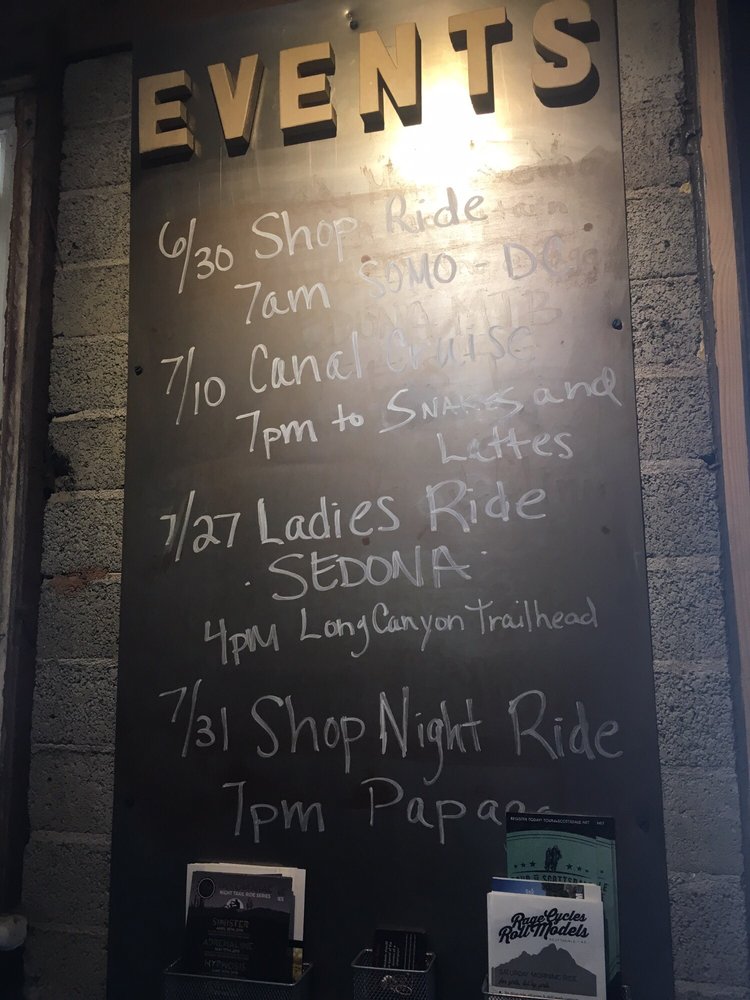 EVENTS
6/30 Shop Ride
7am SOMO - DC
7/10 Canal Cruise
7pm to SNAKES and
Lattes
7/27 Ladies Ride
· SEDONA ·
4pm Long Canyon Trailhead
7/31 Shop Night Ride
7pm Papago
NIGHT TRAIL RIDE SERIES
SINISTER
ADRENALINE
HYPNOSIS
Rage Cycles
Roll Models
SATURDAY MORNING RIDE